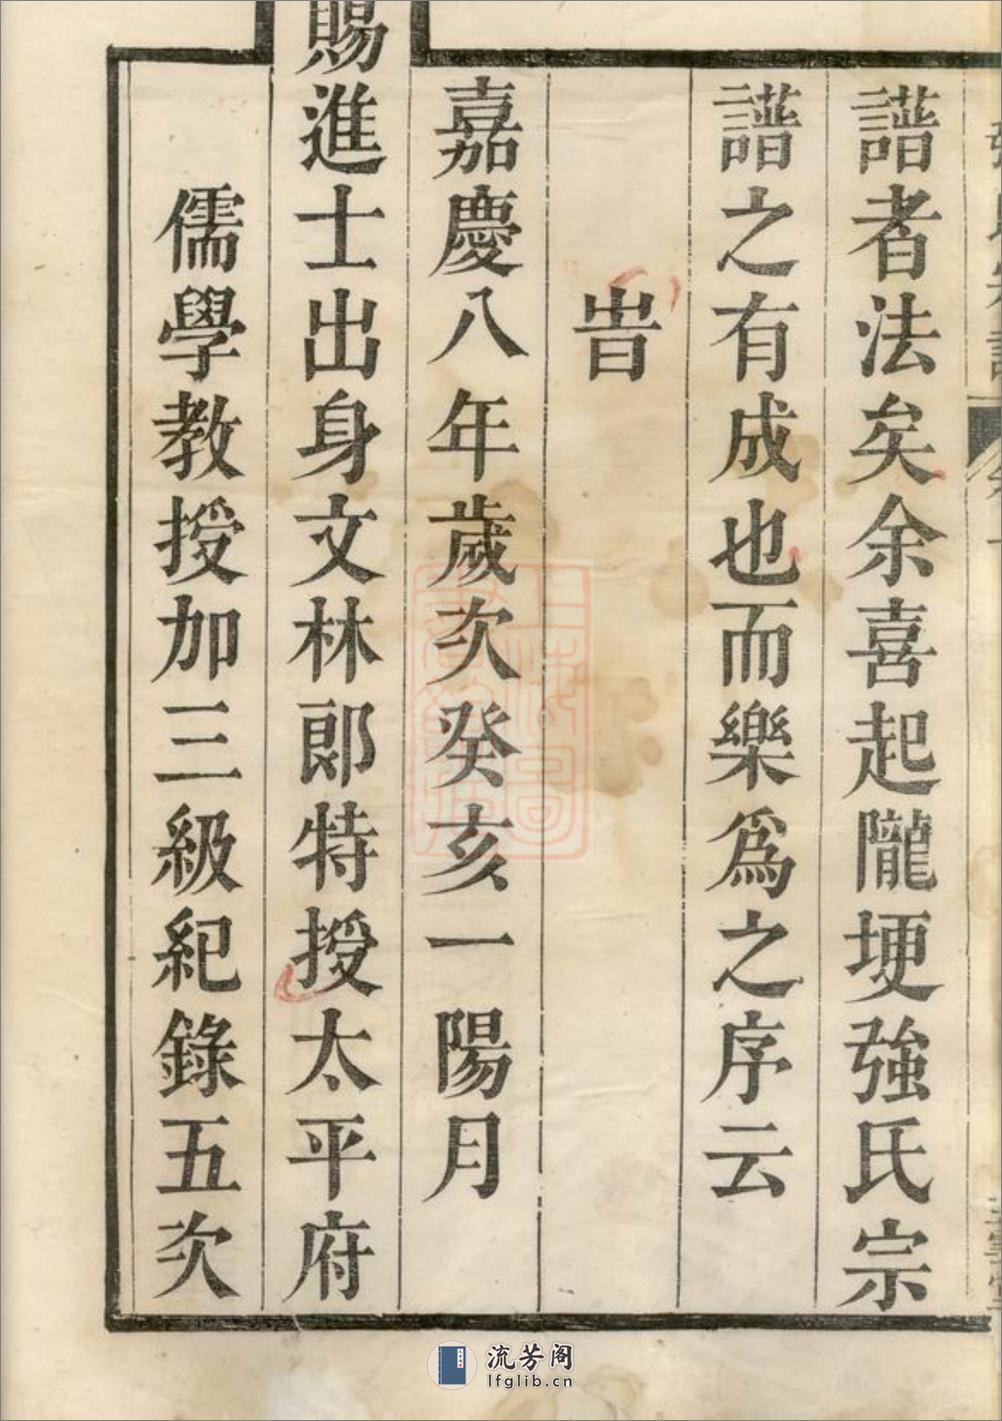 譜者法矣余喜起隴埂強氏宗
譜之有成也而樂爲之序云
旹
嘉慶八年歲次癸亥一陽月
賜進士出身文林郎特授太平府
儒學教授加三級紀錄五次
流芳阁
lfglib.cn